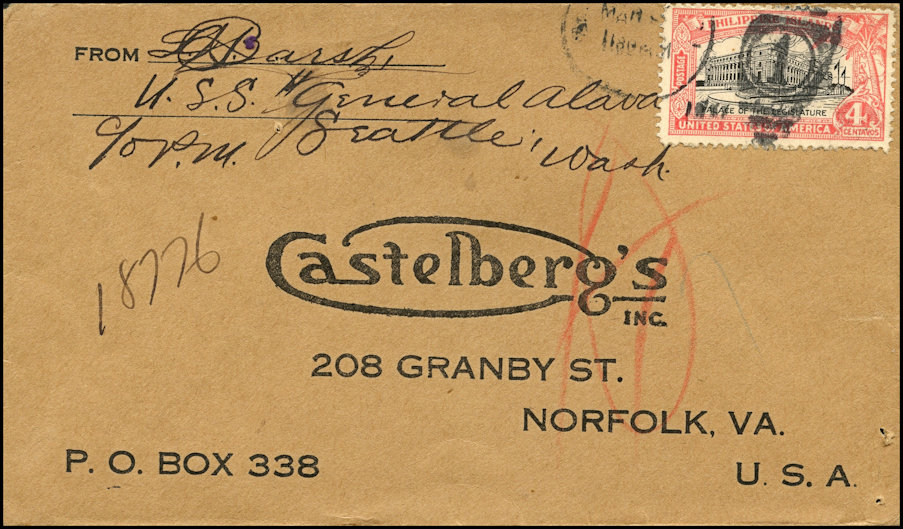 FROM L. D. Marsh,
U.S.S. "General Alava
c/o P.M. Seattle, Wash.
MAR
PHILIPPINE ISLANDS
POSTAGE
PALACE OF THE LEGISLATURE
4 CENTAVOS
UNITED STATES OF AMERICA
18776
Castelberg's
INC.
208 GRANBY ST.
NORFOLK, VA.
P. O. BOX 338
U. S. A.